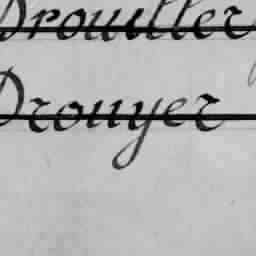 Drouiller
Drouyer